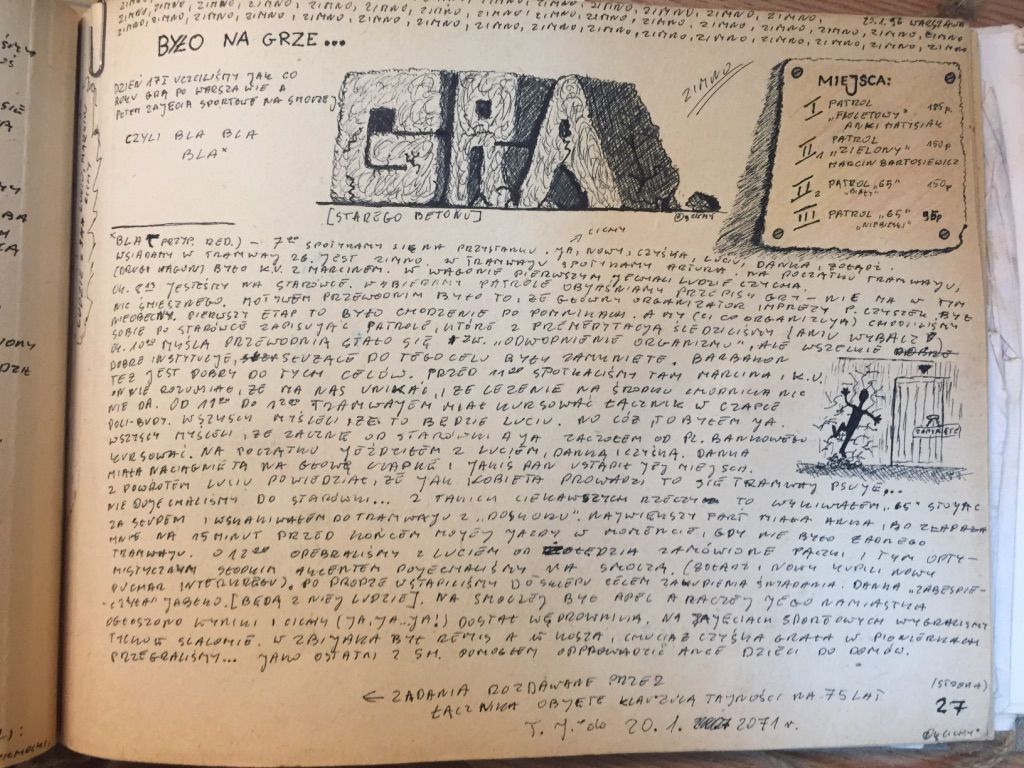 ZIMNO, ZIMNO, ZIMNO, ZIMNO, ZIMNO, ZIMNO, ZIMNO, ZIMNO, ZIMNO,
23.1.96 WARSZAWA
BYŁO NA GRZE...
DZIEŃ UCZCILIŚMY JAK CO
ROKU GRĄ PO WARSZAWIE A
POTEM ZAJĘCIA SPORTOWE NA SMOCZEJ
CZYLI BLA BLA
BLA*
GRA
[STAREGO BETONU]
ZIMNO
MIEJSCA:
I PATROL
"FIOLETOWY" 185p.
ANKI MATYSIAK
II1 PATROL
"ZIELONY" 150p
MARCIN BARTOSIEWICZ
II2 PATROL "65" 150p
"BIAŁY"
III PATROL "65" 95p
"NIEBIESKI"
CICHY
*BLA (PRZYP. RED.) – 7 SPOTYKAMY SIĘ NA PRZYSTANKU. JA, NOWY, CZYŚKA, LUCIU, DANKA, ŻOŁĄDŹ.
WSIADAMY W TRAMWAJ 26. JEST ZIMNO. W TRAMWAJU SPOTYKAMY ARTURA. NA POCZĄTKU TRAMWAJU,
(DRUGI WAGON) BYŁO K.V. Z MARCINEM. W WAGONIE PIERWSZYM JECHALI LUDZIE CZYCHA.
OK. JESTEŚMY NA STARÓWCE. WYBIERAMY PATROLE OBJAŚNIAMY PRZEPISY GRY – NIE MA W TYM
NIC ŚMIESZNEGO. MOTYWEM PRZEWODNIM BYŁO TO, ŻE GŁÓWNY ORGANIZATOR IMPREZY P. CZYSZEK BYŁ
NIEOBECNY. PIERWSZY ETAP TO BYŁO CHODZENIE PO POMNIKACH. A MY (CI CO ORGANIZUJĄ) CHODZILIŚMY
SOBIE PO STARÓWCE ZAPISUJĄC PATROLE, KTÓRE Z PREMEDYTACJĄ ŚLEDZILIŚMY (ANIU WYBACZ!)
OK. 10 MYŚLĄ PRZEWODNIĄ STAŁO SIĘ TZW. "ODWODNIENIE ORGANIZMU", ALE WSZELKIE
DOBRE INSTYTUCJE, SŁUŻĄCE DO TEGO CELU BYŁY ZAMKNIĘTE. BARBAKAN
TEŻ JEST DOBRY DO TYCH CELÓW. PRZED 11 SPOTKALIŚMY TAM MARCINA I K.V.
ON NIE ROZUMIAŁ, ŻE MA NAS UNIKAĆ, I ŻE LEŻENIE NA ŚRODKU CHODNIKA NIC
NIE DA. OD 11 DO 12 TRAMWAJEM MIAŁ KURSOWAĆ ŁĄCZNIK W CZAPCE
WSZYSCY MYŚLELI ŻE TO BĘDZIE LUCIU. NO CÓŻ TO BYŁEM JA.
WSZYSCY MYŚLELI, ŻE ZACZNĘ OD STARÓWKI A JA ZACZĄŁEM OD PL. BANKOWEGO
KURSOWAĆ. NA POCZĄTKU JEŹDZIŁEM Z LUCIEM, DANKĄ I CZYŚKĄ. DANKA
MIAŁA NACIĄGNIĘTĄ NA GŁOWĘ CZAPKĘ I JAKIŚ PAN USTĄPIŁ JEJ MIEJSCA.
Z POWROTEM LUCIU POWIEDZIAŁ, ŻE JAK KOBIETA PROWADZI TO SIĘ TRAMWAJ PSUJE...
NIE DOJECHALIŚMY DO STARÓWKI... Z TAKICH CIEKAWSZYCH RZECZY TO WYKIWAŁEM "65" STOJĄC
ZA SŁUPEM I WSKAKIWAŁEM DO TRAMWAJU Z "DOSKOKU". NAJWIĘKSZY FART MIAŁA ANKA, BO ZŁAPAŁA
MNIE NA 15 MINUT PRZED KOŃCEM MOJEJ JAZDY W MOMENCIE, GDY NIE BYŁO ŻADNEGO
TRAMWAJU. O 12 ODEBRALIŚMY Z LUCIEM OD ŻOŁĘDZIA ZAMÓWIONE PĄCZKI I TYM OPTY-
MISTYCZNYM SŁODKIM AKCENTEM POJECHALIŚMY NA SMOCZĄ. (ŻOŁĄDŹ I NOWY KUPILI NOWY
PUCHAR INTERKRĘGU). PO DRODZE WSTĄPILIŚMY DO SKLEPU CELEM ZAKUPIENIA ŚNIADANIA. DANKA "ZABEZPIE-
CZYŁA" JABŁKO. [BĘDĄ Z NIEJ LUDZIE]. NA SMOCZEJ BYŁ APEL A RACZEJ JEGO NAMIASTKA
OGŁOSZONO WYNIKI I CICHY (JA, JA...JA!) DOSTAŁ WĘDROWNIKA. NA ZAJĘCIACH SPORTOWYCH WYGRALIŚMY
TYLKO W SLALOMIE. W ZBIJAKA BYŁ REMIS A W KOSZA, CHOCIAŻ CZYŚKA GRAŁA W PIONIERKACH
PRZEGRALIŚMY... JAKO OSTATNI Z SM. POMOGŁEM ODPROWADZIĆ ANCE DZIECI DO DOMÓW.
← ZADANIA ROZDAWANE PRZEZ
ŁĄCZNIKA OBJĘTE KLAUZULĄ TAJNOŚCI NA 75 LAT
T. J. do 20.1. 2071 r.
(STRONA)
27